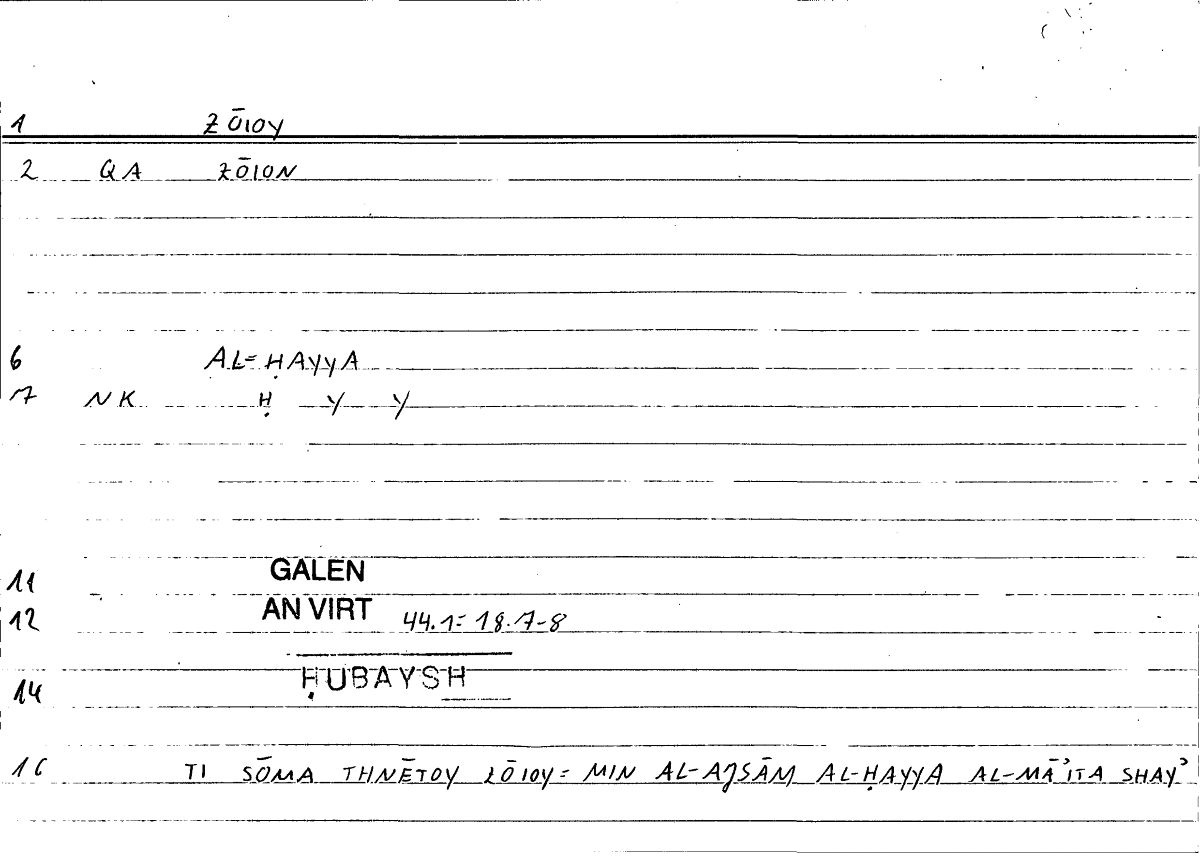 1 ZŌIOY
2 QA ZŌION
6 AL-ḤAYYA
7 NK Ḥ Y Y
11 GALEN
12 AN VIRT 44.1= 18.7-8
14 ḤUBAYSH
16 TI SŌMA THNĒTOY ZŌIOY= MIN AL-AJSĀM AL-ḤAYYA AL-MĀʾITA SHAYʾ